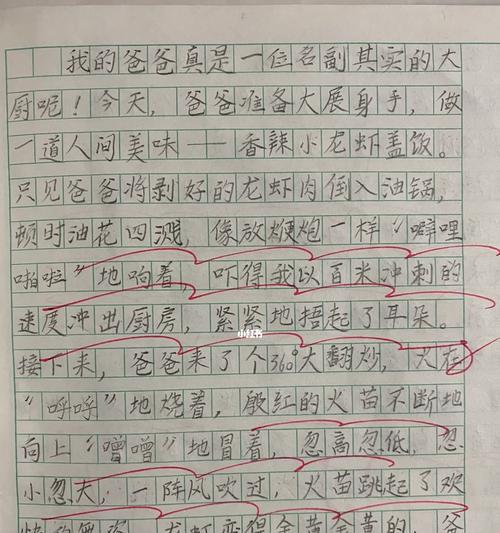 我的爸爸真是一位名副其实的大
厨呢！今天，爸爸准备大展身手，做
一道人间美味——香辣小龙虾盖饭。
只见爸爸将剥好的龙虾肉倒入油锅，
顿时油花四溅，像放鞭炮一样“噼哩
啪啦”地响着，吓得我以百米冲刺的
速度冲出厨房，紧紧地捂起了耳朵。
接下来，爸爸来了个360°大翻炒，火在
“呼呼”地烧着，殷红的火苗不断地
向上“噌噌”地冒着，忽高忽低，忽
小忽大，一阵风吹过，火苗跳起了欢
快的舞 龙虾变得金黄金黄的，爸
小红书